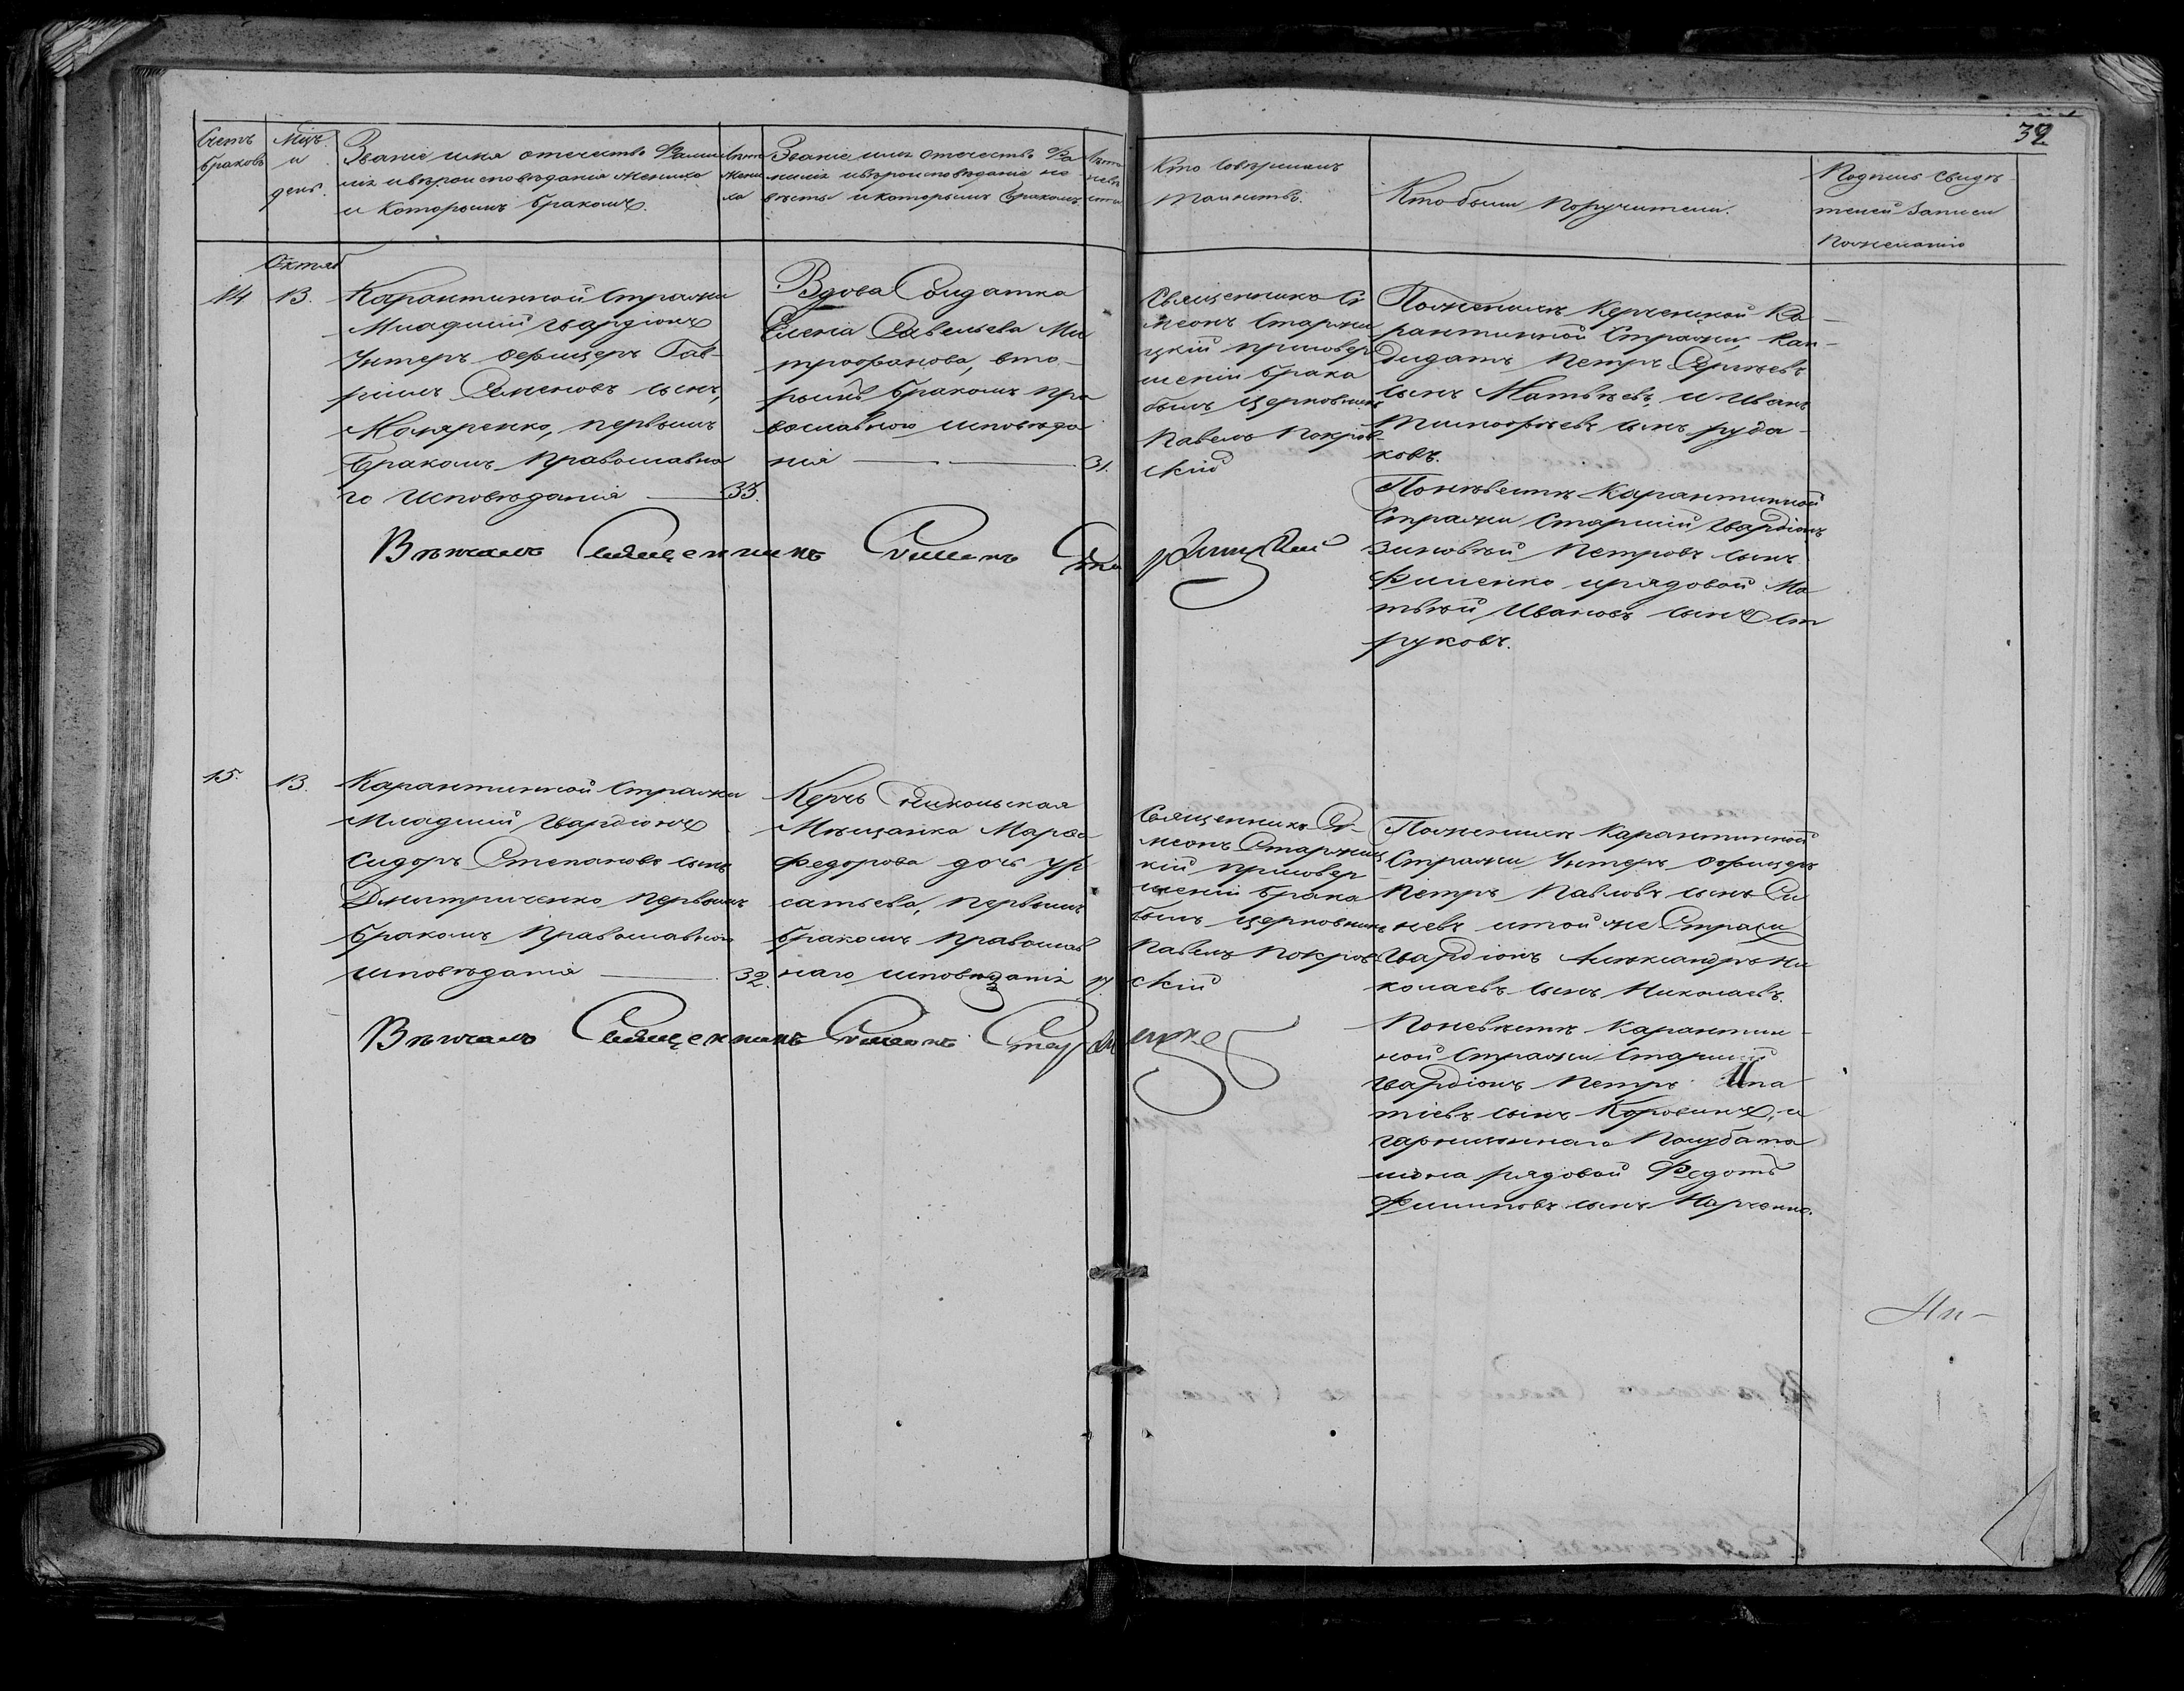 39
Счетъ
браковъ
Мцъ
и
день.
Званіе имя отечество Фами
лія ивѣроисповѣданія жениха
и которымъ бракомъ.
Лѣта
жени
ха
Званіе имя отечество Фа
милія ивѣроисповѣданіе не
вѣсты икоторымъ бракомъ
Лѣта
невѣ
сты
Кто совершалъ
таинство.
Кто были поручители.
Подпись свидѣ
телей записи
пожеланію
Октяб
14
13.
Карантинной Стражи
Младшій гвардіонъ
Унтеръ офицеръ Гав-
ріилъ Семеновъ сынъ,
Моляренко, первымъ
бракомъ православна
го исповѣданія
33.
Вдова Солдатка
Елена Савельева Ми
трофанова, вто-
рымъ бракомъ пра
вославного исповѣда
нія
31.
Священникъ Си
меонъ Старжи
цкій присовер
шеніи брака
былъ церковникъ
Павелъ Покров-
скій
Поженихѣ Керченской Ка-
рантинной Стражи, Кан-
дидатъ Петръ Сергѣевъ
сынъ Матвѣевъ, и Иванъ
Тимофѣевъ сынъ руда-
ковъ.
Поневѣстѣ Карантинной
Стражи Старшій гвардіонъ
Зиновѣй Петровъ сынъ
Фименко ирядовой Ма
твѣй Ивановъ сынъ Ст
руковъ.
Вѣнчалъ Священникъ Симеонъ Ста ржицкій
15.
13.
Карантинной Стражи
Младшій гвардіонъ
Сидоръ Степановъ сынъ
Дмитриченко первымъ
бракомъ православного
исповѣданія
32.
Керчь Еникольская
Мѣщанка Марфа
Федорова дочь Ур
сатьева, первымъ
бракомъ православ
наго исповѣданія
17.
Священникъ Си-
меонъ Старжиц
кій присовер
шеніи брака
былъ церковникъ
Павелъ Покров
скій
Поженихѣ Карантинной
Стражи Унтеръ офицеръ
Петръ Павловъ сынъ Си
невъ итой же Стражи
гвардіонъ Александръ Ни
колаевъ сынъ Николаевъ.
Поневѣстѣ Карантин-
ной Стражи Старшій
гвардіонъ Петръ Ипа
тіевъ сынъ Коровинъ, и
гарнизоннаго Полубата
ліона рядовой Федотъ
Филиповъ сынъ Марченко.
Вѣнчалъ Священникъ Симеонъ Старжицкій